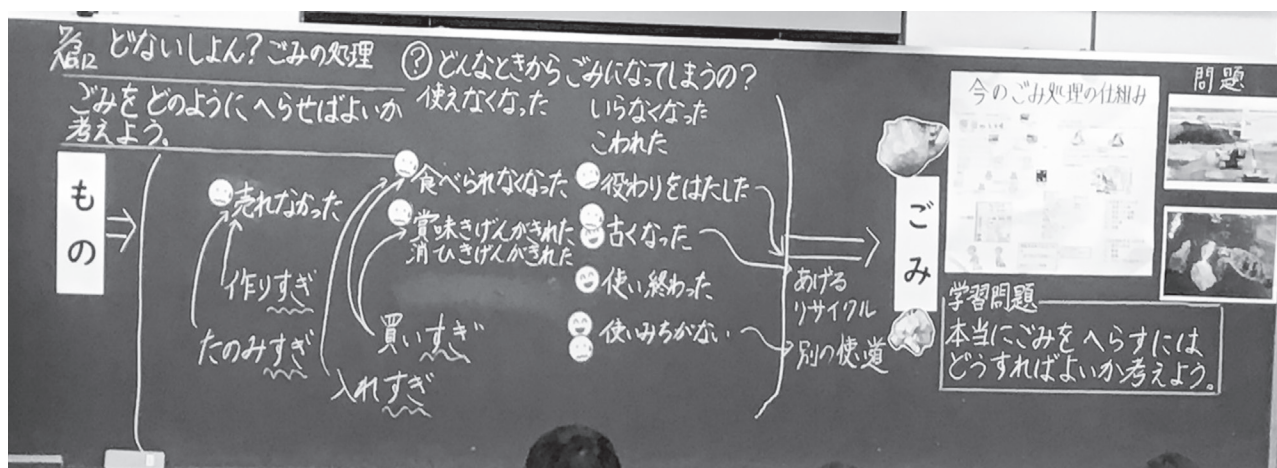 どないしよん？ごみの処理
ごみをどのようにへらせばよいか
考えよう。
？どんなときからごみになってしまうの？
使えなくなった
いらなくなった
こわれた
もの
売れなかった
作りすぎ
たのみすぎ
食べられなくなった
賞味きげんがきれた
消ひきげんがきれた
買いすぎ
入れすぎ
役わりをはたした
古くなった
使い終わった
使いみちがない
あげる
リサイクル
別の使い道
ごみ
今のごみ処理の仕組み
問題
学習問題
本当にごみをへらすには
どうすればよいか考えよう。